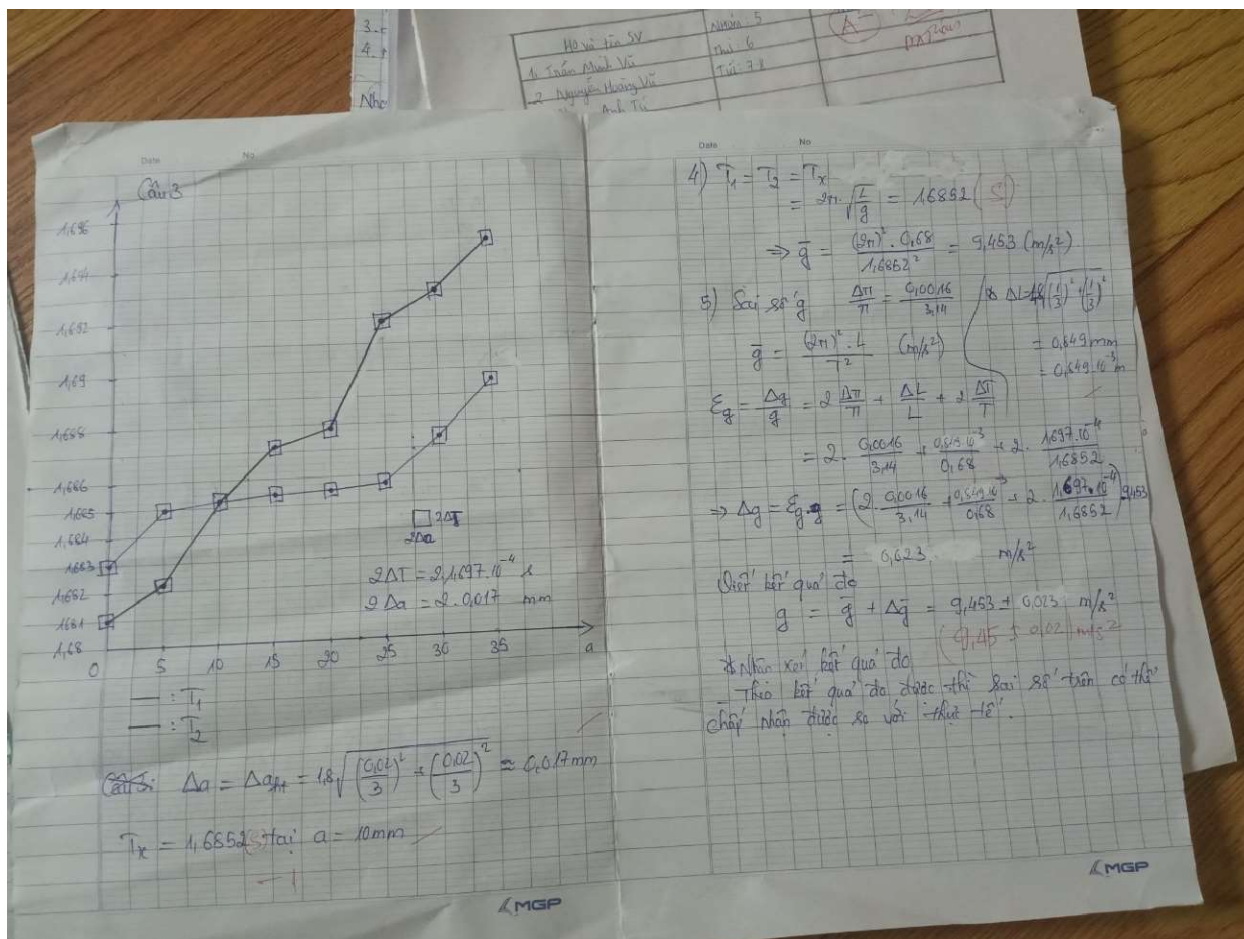 3.
4.
Nhc
Họ và tên SV
Nhóm: 5
A-
1. Trần Minh Vũ
Thứ: 6
2. Nguyễn Hoàng Vũ
Tiết: 7-8
Anh Tú
Date No
Câu 3
1,696
1,694
1,692
1,69
1,688
1,686
1,685
1,684
1,683
1,682
1,681
1,68
0 5 10 15 20 25 30 35 a
2ΔT
2Δa
2ΔT = 2.1,697.10⁻⁴ s
2Δa = 2.0,017 mm
— : T₁
— : T₂
Câu 3: Δa = Δaht = 1,8√((0,02/3)² + (0,02/3)²) ≈ 0,017mm
Tx = 1,6852(s) tại a = 10mm
- 1
MGP
Date No
4) T₁ = T₂ = Tx
= 2π.√(L/g) = 1,6852 (s)
⇒ g̅ = (2π)².0,68/1,6852² = 9,453 (m/s²)
5) Sai số g Δπ/π = 0,0016/3,14
* ΔL = 1,8√((1/3)² + (1/3)²)
= 0,849mm
= 0,849.10⁻³m
g̅ = (2π)².L/T² (m/s²)
εg = Δg/g = 2 Δπ/π + ΔL/L + 2 ΔT/T
= 2. 0,0016/3,14 + 0,849.10⁻³/0,68 + 2. 1,697.10⁻⁴/1,6852
⇒ Δg = εg.g = (2. 0,0016/3,14 + 0,849.10⁻³/0,68 + 2. 1,697.10⁻⁴/1,6852) 9,453
= 0,023 m/s²
Viết kết quả đo
g = g̅ ± Δg̅ = 9,453 ± 0,023 m/s²
(9,45 ± 0,02) m/s²
* Nhận xét kết quả đo
- Theo kết quả đo được thì sai số trên có thể
chấp nhận được so với thực tế.
MGP